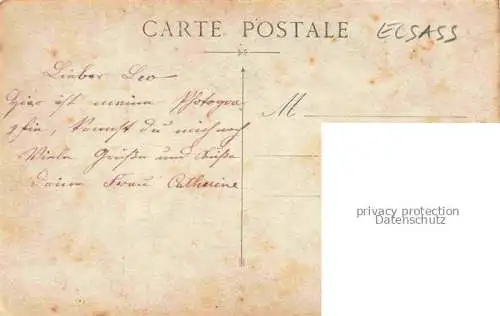 CARTE POSTALE
ELSASS
Lieber Leo
Hier ist meine Photogra
phie, kennst du mich noch
Viele Grüße und Küße
deine Frau Catherine
M
privacy protection
Datenschutz